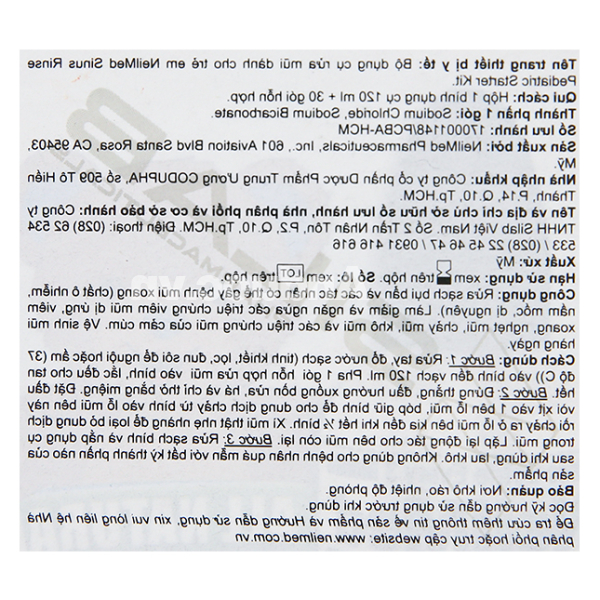 Tên trang thiết bị y tế: Bộ dụng cụ rửa mũi dành cho trẻ em NeilMed Sinus Rinse
Pediatric Starter Kit.
Qui cách: Hộp 1 bình 120 ml + 30 gói hỗn hợp.
Thành phần 1 gói: Sodium Chloride, Sodium Bicarbonate.
Số lưu hành: 170001148/PCBA-HCM
Sản xuất bởi: NeilMed Pharmaceuticals, Inc., 601 Aviation Blvd Santa Rosa, CA 95403,
Mỹ.
Nhà nhập khẩu: Công ty cổ phần Dược Phẩm Trung Ương CODUPHA, số 509 Tô Hiến
Thành, P.14, Q.10, Tp.HCM.
Tên và địa chỉ chủ sở hữu số lưu hành, nhà phân phối và cơ sở bảo hành: Công ty
TNHH Silab Việt Nam. Số 2 Trần Nhân Tôn, P.2, Q.10, Tp.HCM. Điện thoại: (028) 62 534
533 / (028) 22 45 46 47 / 0931 416 616
Xuất xứ: Mỹ
Hạn sử dụng: xem trên hộp. Số lô: xem LOT trên hộp.
Công dụng: Rửa sạch bụi bẩn và các tác nhân có thể gây bệnh mũi xoang (chất ô nhiễm,
nấm mốc, dị nguyên). Làm giảm và ngăn ngừa các triệu chứng viêm mũi dị ứng, viêm
xoang, nghẹt mũi, chảy mũi, khô mũi và các triệu chứng mũi của cảm cúm. Vệ sinh mũi
hàng ngày.
Cách dùng: Bước 1: Rửa tay, đổ nước sạch (tinh khiết, lọc, đun sôi để nguội hoặc ấm (37
độ C)) vào bình đến vạch 120 ml. Pha 1 gói hỗn hợp rửa mũi vào bình, lắc đều cho tan
hết. Bước 2: Đứng thẳng, đầu hướng xuống bồn rửa, há và chỉ thở bằng miệng. Đặt đầu
vòi xịt vào 1 bên lỗ mũi, bóp giữ bình để cho dung dịch chảy từ bình vào lỗ mũi bên này
rồi chảy ra ở lỗ mũi bên kia đến khi hết ½ bình. Xì mũi thật nhẹ nhàng để loại bỏ dung dịch
trong mũi. Lặp lại động tác cho bên mũi còn lại. Bước 3: Rửa sạch bình và nắp dụng cụ
sau khi dùng, lau khô. Không dùng cho bệnh nhân quá mẫn với bất kỳ thành phần nào của
sản phẩm.
Bảo quản: Nơi khô ráo, nhiệt độ phòng.
Đọc kỹ hướng dẫn sử dụng trước khi dùng.
Để tra cứu thêm thông tin về sản phẩm và Hướng dẫn sử dụng, xin vui lòng liên hệ Nhà
phân phối hoặc truy cập website: www.neilmed.com.vn.